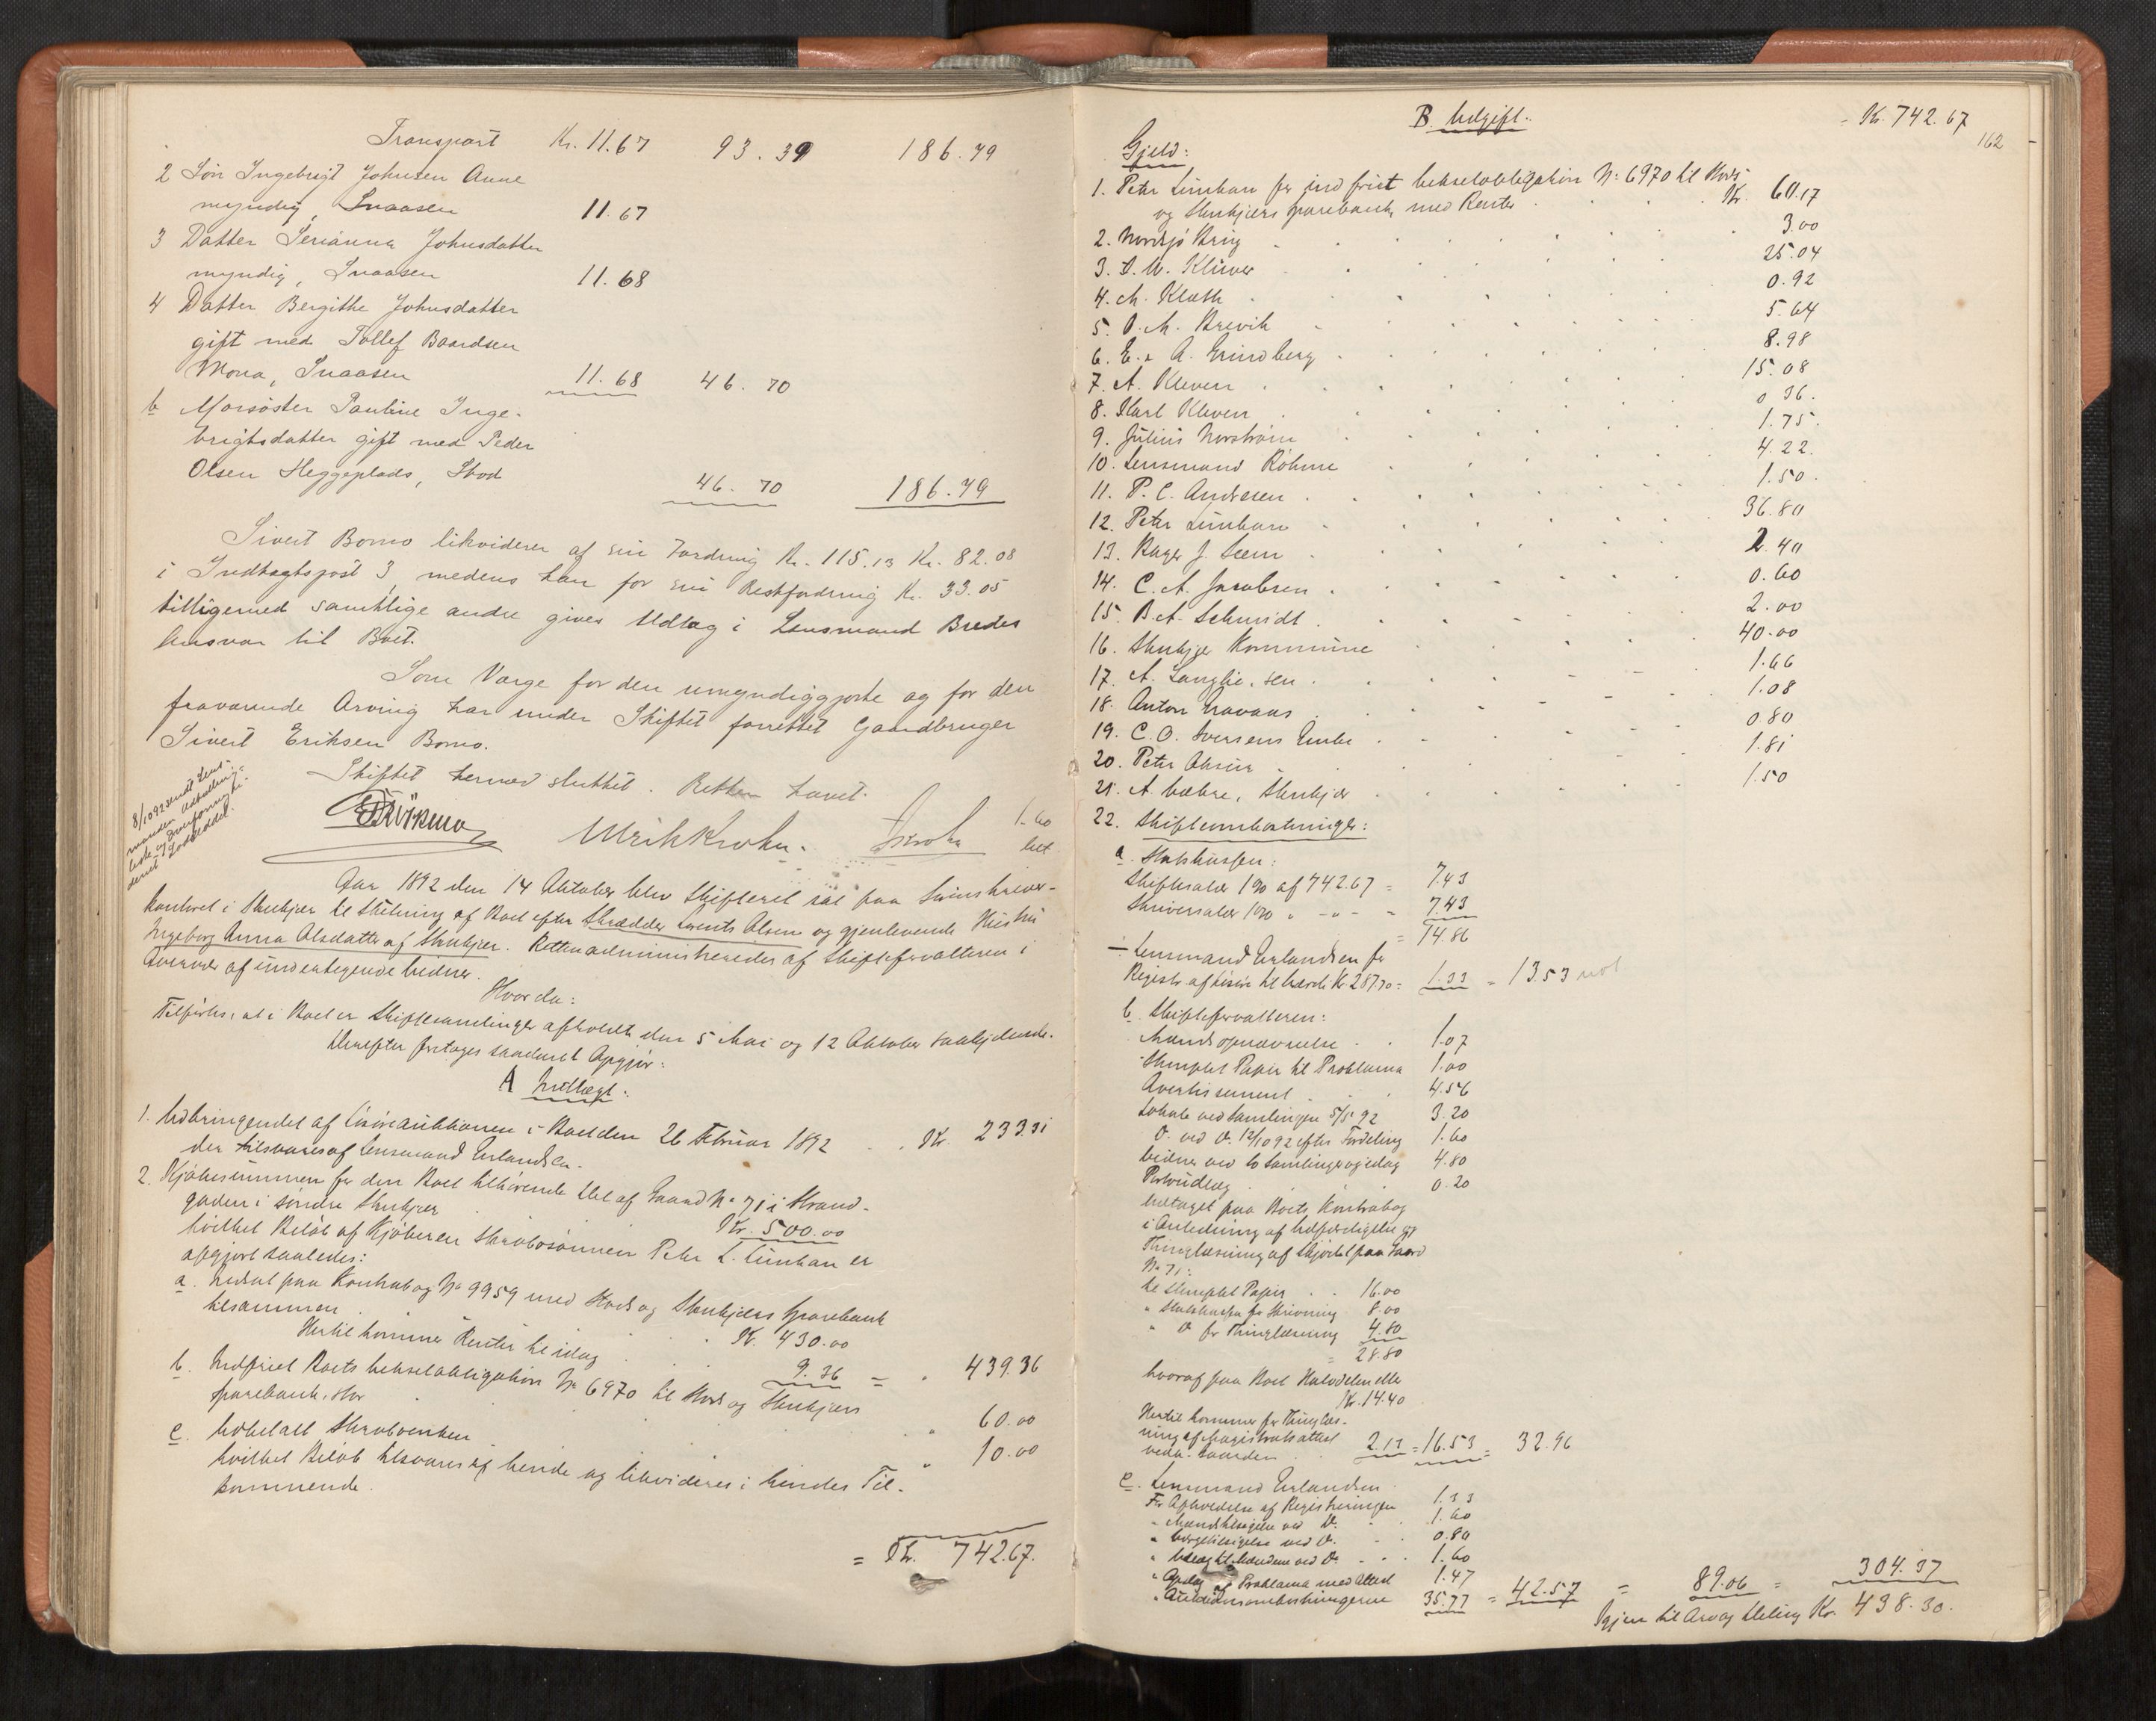 Transport Kr. 11.67 93.39 186.79
2 Søn Ingebrigt Johnsen Aune
myndig, Snaasen 11.67
3 Datter Serianna Johnsdatter
myndig, Snaasen 11.68
4 Datter Bergithe Johnsdatter
gift med Tollef Baardsen
Mona, Snaasen 11.68 46.70
b Morsøster Pauline Inge-
brigtsdatter gift med Peder
Olsen Heggeplads, Stod
46.70 186.79
Sivert Bomo likviderer af sin Fordring Kr. 115.13 Kr. 82.08
i Indtægtspost 3, medens han for sin Restfordring Kr. 33.05
tilligemed samtlige andre gives Udlæg i Lensmand Bredes
Ansvar til Boet.
Som Værge for den umyndiggjorte og for den
fraværende Arving har under Skiftet forrettet Gaardbruger
Sivert Eriksen Bomo.
Skiftet hermed sluttet. Retten hævet.
8/10 92 sendt Lens-
manden Udlodnings-
Ulrik Krohn. Krohn 1.60
bet
Aar 1892 den 14 Oktober blev Skifteret sat paa Sorenskriver-
kontoret i Stenkjær til Slutning af Boet efter Skrædder Lorents Olsen og gjenlevende Hustru
Ingeborg Anna Olsdatter af Stenkjær. Retten administreredes af Skifteforvalteren i
Overvær af undertegnede Vidner.
Hvorda:
Tilførtes, at i Boet er Skiftesamlinger afholdt den 5 Mai og 12 Oktober sidstleden.
Derefter foretages saadant Opgjør:
A Indtægt:
1. Udbringendet af Løsøreauktionen i Boet den 26 Februar 1892 . . Kr. 233.31
der tilsvares af Lensmand Erlandsen.
2. Kjøbesummen for den Boet tilhørende Del af Gaard No 71 i Strand-
gaden i søndre Stenkjær Kr. 500.00
hvilket Beløb af Kjøberen Skrabosønnen Peter L. Lunhan er
opgjort saaledes:
a. Indsat paa Kontrabog No 9959 med Stods og Stenkjærs Sparebank
tilsammen . . Kr. 430.00
Hertil kommer Renter til idag 9.36 = " 439.36
b. Indfriet Boets Vekselobligation No 6970 til Stods og Stenkjærs
Sparebank, stor " 60.00
c. Udbetalt Skraboenken " 10.00
hvilket Beløb tilsvares af hende og likvideres i hendes Til-
kommende.
= Kr. 742.67.
B Udgift. Kr. 742.67
162
Gjeld:
1. Peter Lunhan for indfriet Vekselobligation No 6970 til Stods
og Stenkjærs Sparebank med Renter . . Kr. 60.17
2. Nordsjø Brug 3.00
3. O. W. Klüwer 25.04
4. M. Kleth 0.92
5. O. M. Brevik 5.64
6. E. & A. Grindberg 8.98
7. A. Kleven 15.08
8. Karl Kleven 0.36.
9. Julius Norstrøm 1.75.
10. Lensmand Röhme 4.22.
11. P. C. Andresen 1.50.
12. Peter Lunhan 36.80
13. Bager J. Lein 2.40
14. C. A. Jacobsen 0.60
15. B. A. Schmidt 2.00
16. Stenkjær Kommune 40.00
17. A. Langlie, sen. 1.66
18. Anton Gravaas 1.08
19. C. O. Iversens Enke 0.80
20. Peter Ahrin 1.81
21. A. Vække, Stenkjær 1.50
22. Skifteomkostninger:
a. Statskassen:
Skiftesalær 1% af 742.67 = 7.43
Skriversalær 1% " - " - = 7.43
= 14.86
÷ Lensmand Erlandsen for
Registr. af Løsøre til Værdi Kr. 287.70 = 1.33 = 13.53
b. Skifteforvalteren:
Mandsopnævnelse . . 1.07
Stemplet Papir til Proklama 1.00
Avertissement . . 4.56
Lokale ved Samlingen 5/5 92 3.20
Do. ved Do. 12/10 92 efter Fordeling 1.60
Vidner ved to Samlinger og idag 4.80
Portoudlæg 0.20
Udtaget paa Boets Kontrabog
i Anledning af Udfærdigelse og
Thinglæsning af Skjødet paa Gaard
No 71:
til Stemplet Papir . . 16.00
" Statskassen for Skrivning 8.00
" Do for Thinglæsning 4.80
= 28.80
hvoraf paa Boet Halvdelen eller
Kr. 14.40
Hertil kommer for Thinglæs-
ning af Magistratsattest
vedk. Gaarden 2.13 = 16.53 = 32.96
c. Lensmand Erlandsen
For Afholdelse af Registreringen 1.33
" Mændstilsigelse ved Do. 1.60
" Værgetilsigelse ved Do. 0.80
" Udlæg til Mændene ved Do. 1.60
" Opslag af Proklama med Attest 1.47
" Auktionsomkostningerne 35.77 = 42.57 = 89.06 = 304.37
Igjen til Arv og Deling Kr. 438.30.